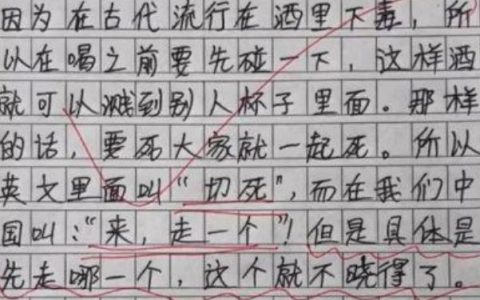 因为在古代流行在酒里下毒，所
以在喝之前要先碰一下，这样酒
就可以溅到别人杯子里面。那样
的话，要死大家就一起死。所以
英文里面叫“切死”，而在我们中
国叫：“来，走一个”！但是具体是
先走哪一个，这个就不晓得了。